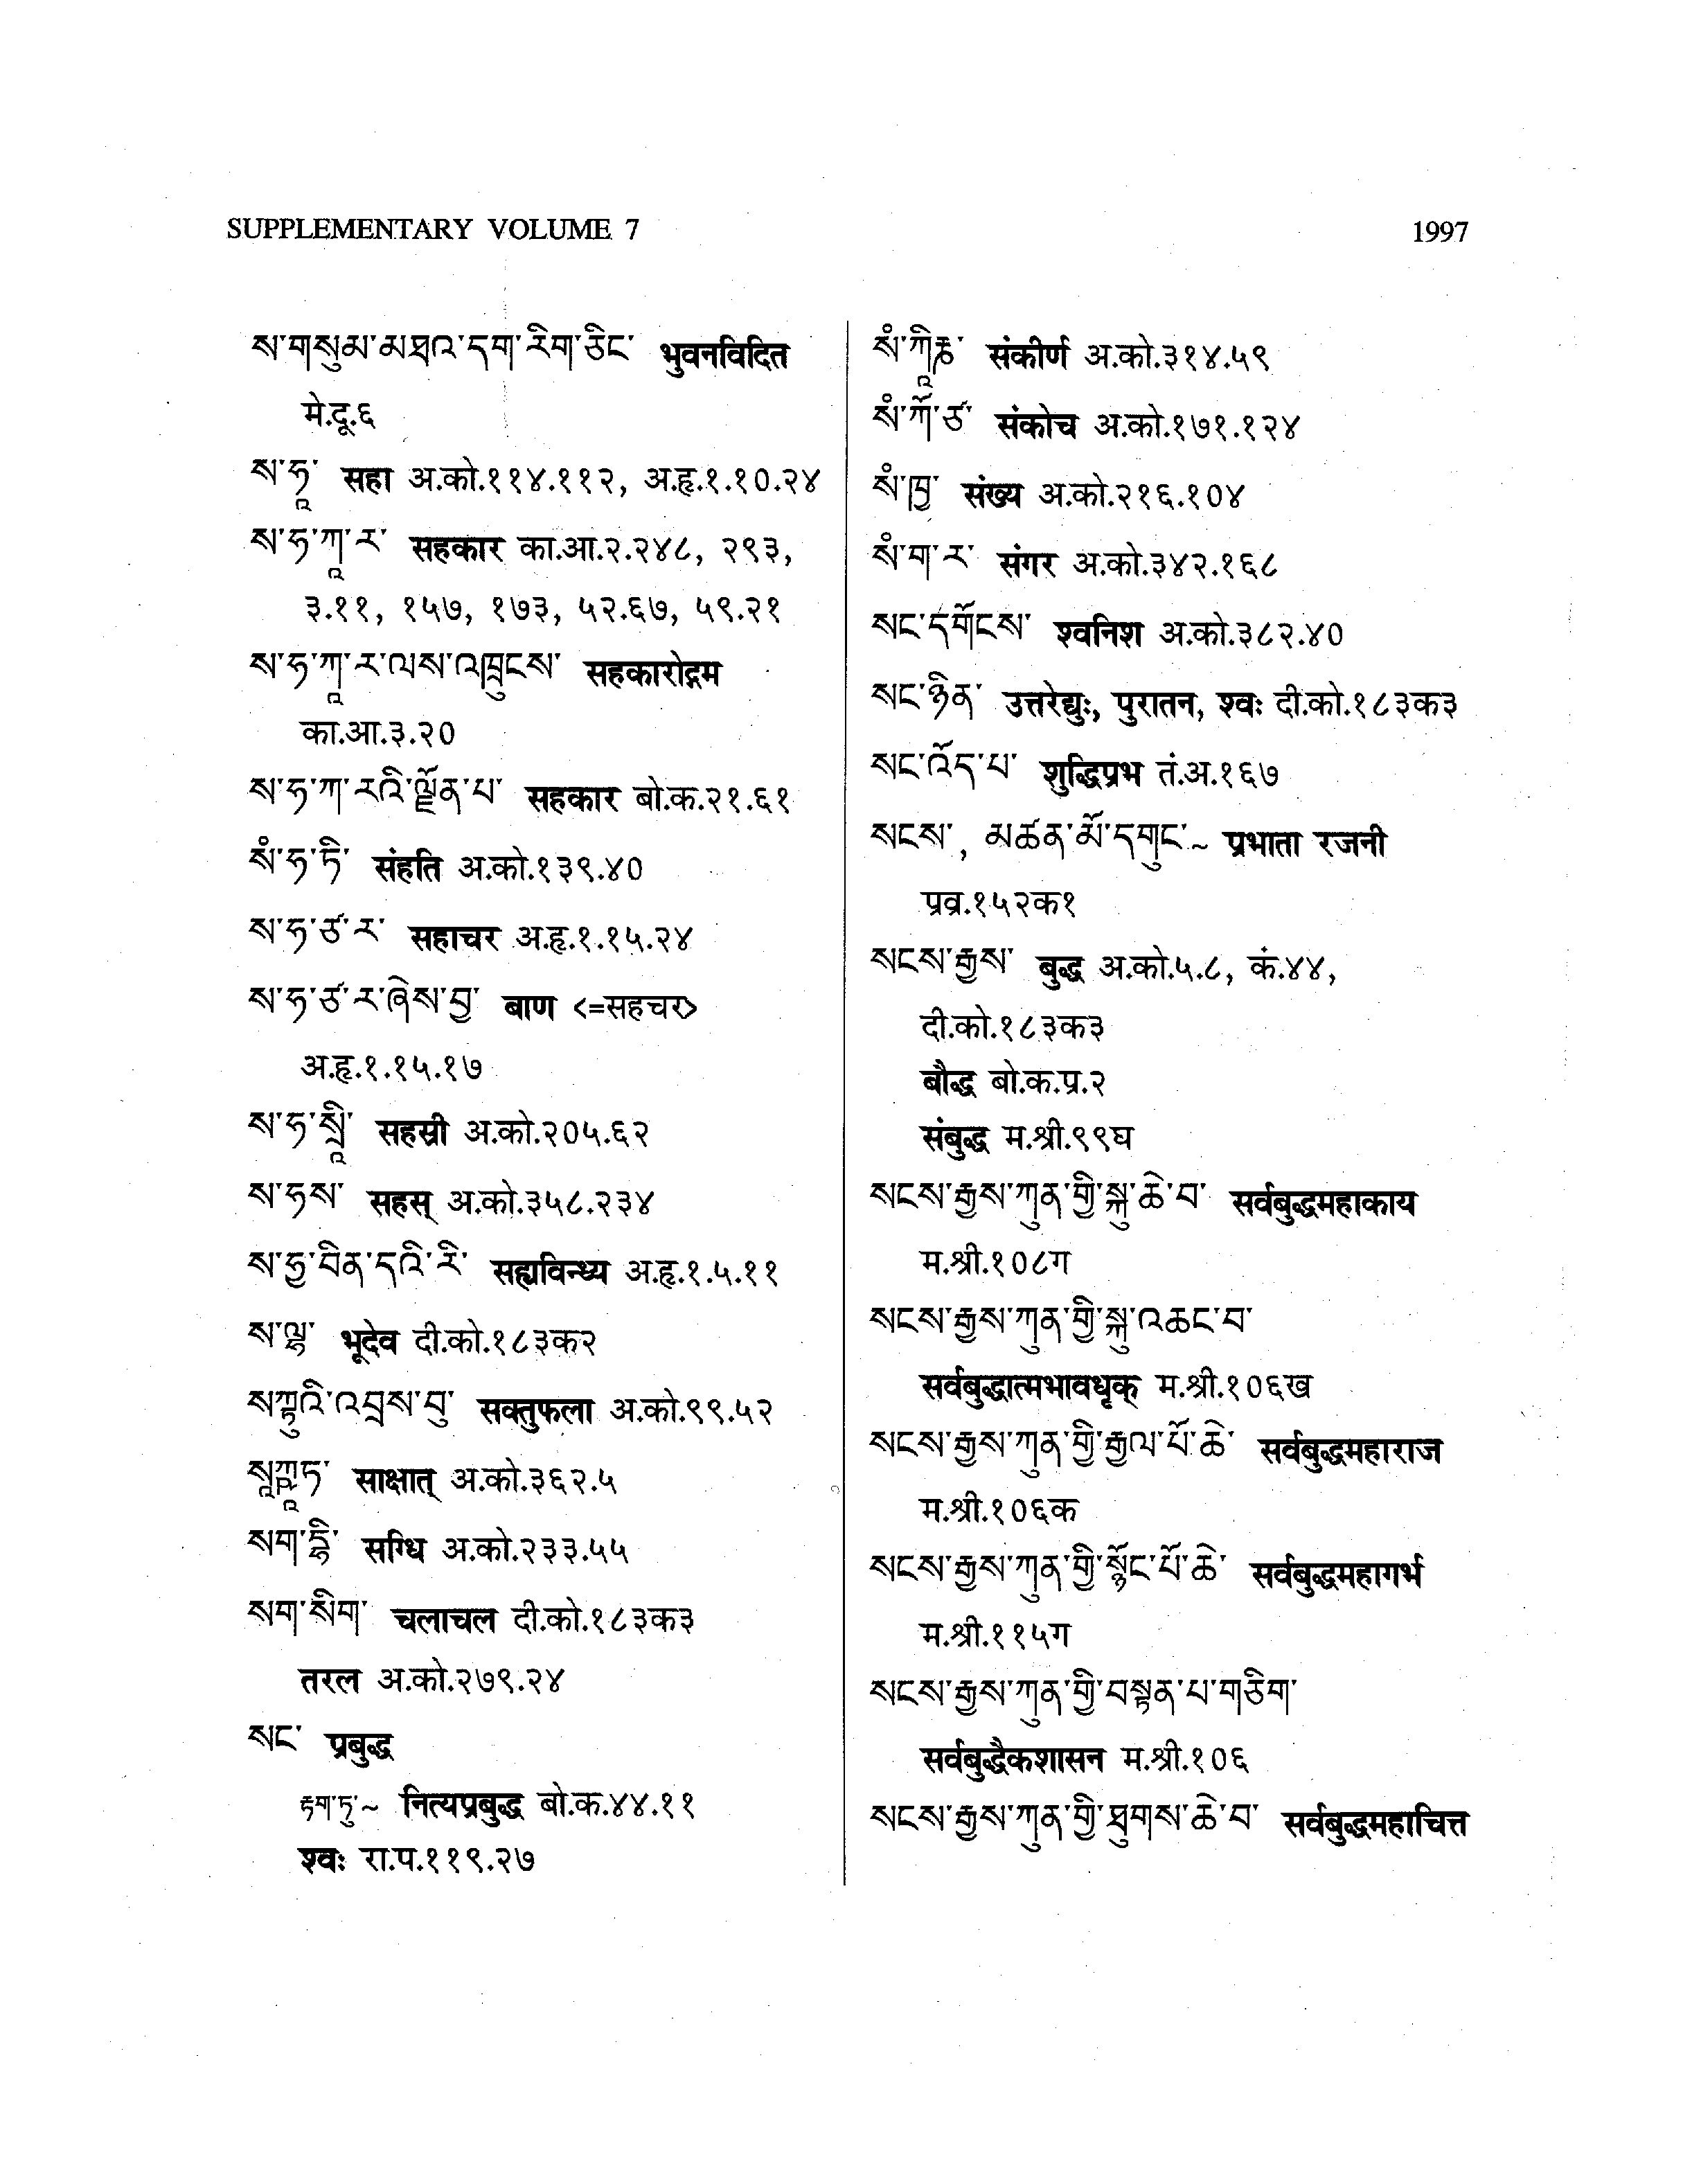 SUPPLEMENTARY VOLUME 7 1997
ས་གསུམ་མཐའ་དག་རིག་ཅིང་ भुवनविदित
मे.दू.६
ས་ཧཱ་ सहा अ.को.११४.११२, अ.हृ.१.१०.२४
ས་ཧ་ཀཱ་ར་ सहकार का.आ.२.२४८, २९३,
३.११, १५७, १७३, ५२.६७, ५९.२१
ས་ཧ་ཀཱ་ར་ལས་འཁྲུངས་ सहकारोद्गम
का.आ.३.२०
ས་ཧ་ཀ་རའི་ལྗོན་པ་ सहकार बो.क.२१.६१
སཾ་ཧ་ཏི་ संहति अ.को.१३९.४०
ས་ཧ་ཙ་ར་ सहाचर अ.हृ.१.१५.२४
ས་ཧ་ཙ་ར་ཞེས་བྱ་ बाण <=सहचर>
अ.हृ.१.१५.१७
ས་ཧ་སྲཱི་ सहस्री अ.को.२०५.६२
ས་ཧས་ सहस् अ.को.३५८.२३४
ས་ཧྱ་བིན་དའི་རི་ सह्यविन्ध्य अ.हृ.१.५.११
ས་ལྷ་ भूदेव दी.को.१८३क२
སཀྟུའི་འབྲས་བུ་ सक्तुफला अ.को.९९.५२
साक्षात् अ.को.३६२.५
སག་དྷི་ सग्धि अ.को.२३३.५५
སག་སིག་ चलाचल दी.को.१८३क३
तरल अ.को.२७९.२४
སང་ प्रबुद्ध
རྟག་ཏུ་~ नित्यप्रबुद्ध बो.क.४४.११
श्वः रा.प.११९.२७
སཾ་ཀཱིརྞ་ संकीर्ण अ.को.३१४.५९
སཾ་ཀོ་ཙ་ संकोच अ.को.१७१.१२४
སཾ་ཁྱ་ संख्य अ.को.२१६.१०४
སཾ་ག་ར་ संगर अ.को.३४२.१६८
སང་དགོངས་ श्वनिश अ.को.३८२.४०
སང་ཉིན་ उत्तरेद्युः, पुरातन, श्वः दी.को.१८३क३
སང་འོད་པ་ शुद्धिप्रभ तं.अ.१६७
སངས་, མཚན་མོ་དགུང་~ प्रभाता रजनी
प्रव्र.१५२क१
སངས་རྒྱས་ बुद्ध अ.को.५.८, कं.४४,
दी.को.१८३क३
बौद्ध बो.क.प्र.२
संबुद्ध म.श्री.९९घ
སངས་རྒྱས་ཀུན་གྱི་སྐུ་ཆེ་བ་ सर्वबुद्धमहाकाय
म.श्री.१०८ग
སངས་རྒྱས་ཀུན་གྱི་སྐུ་འཆང་བ་
सर्वबुद्धात्मभावधृक् म.श्री.१०६ख
སངས་རྒྱས་ཀུན་གྱི་རྒྱལ་པོ་ཆེ་ सर्वबुद्धमहाराज
म.श्री.१०६क
སངས་རྒྱས་ཀུན་གྱི་སྙིང་པོ་ཆེ་ सर्वबुद्धमहागर्भ
म.श्री.११५ग
སངས་རྒྱས་ཀུན་གྱི་བསྟན་པ་གཅིག་
सर्वबुद्धैकशासन म.श्री.१०६
སངས་རྒྱས་ཀུན་གྱི་ཐུགས་ཆེ་བ་ सर्वबुद्धमहाचित्त